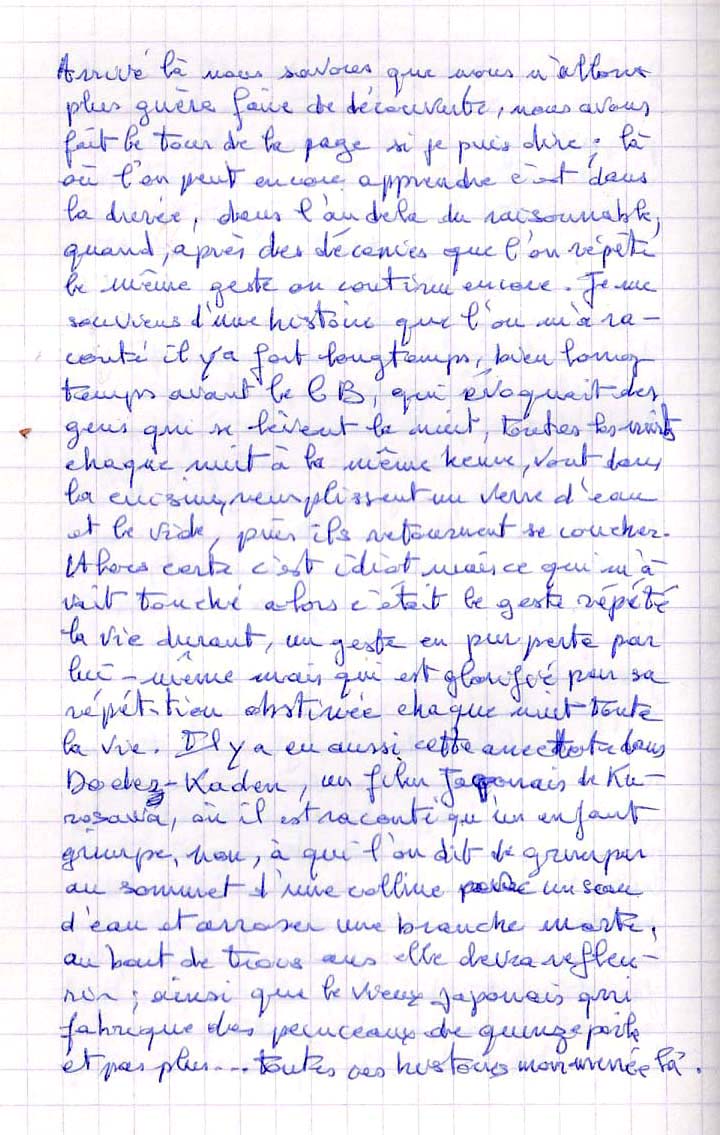 Arrivé là nous savons que nous n'allons
plus guère faire de découverte, nous avons
fait le tour de la page si je puis dire ; là
où l'on peut encore apprendre c'est dans
la durée, dans l'au dela du raisonnable,
quand, après des décenies que l'on répète
le même geste on continu encore. Je me
souviens d'une histoire que l'on m'a ra-
conté il y a fort longtemps, bien long-
temps avant le CB, qui évoquait des
gens qui se lèvent la nuit, toutes les nuits
chaque nuit à la même heure, vont dans
la cuisine, remplissent un verre d'eau
et le vide, puis ils retournent se coucher.
Alors certe c'est idiot mais ce qui m'a-
vait touché alors c'était le geste répété
la vie durant, un geste en pur perte par
lui-même mais qui est glorifié par sa
répétition obstinée chaque nuit toute
la vie. Il y a eu aussi cette anecdote dans
Dodes-Kaden, un film Japonais de Ku-
rosawa, où il est raconté qu'un enfant
grimpe, non, à qui l'on dit de grimper
au sommet d'une colline un seau
d'eau et arroser une branche morte,
au bout de trois ans elle devra refleu-
rir ; ainsi que le vieux Japonais qui
fabrique des pinceaux de quinze poils
et pas plus... toutes ces histoires mon menée là.